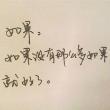 如果。
如果没有那么多如果
就好了。